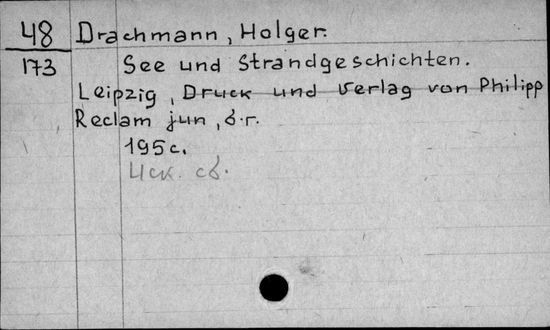 48 Drachmann, Holger.
173 See und Strandgeschichten.
Leipzig, Druck und Verlag von Philipp
Reclam jun, б.г.
195 с.
Иск. сб.